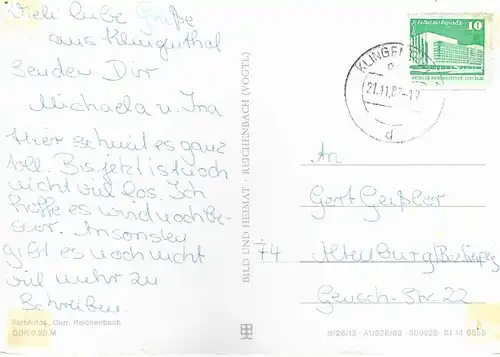 Viele liebe Grüße
aus Klingenthal
senden Dir
Michaela u. Ina
Hier schneit es ganz
toll. Bis jetzt ist noch
nicht viel los. Ich
hoffe es wird noch bes-
ser. Ansonsten
gibt es noch nicht
viel mehr zu
schreiben.
Farbfotos: Darr, Reichenbach
DDR 0,20 M
BILD UND HEIMAT · REICHENBACH (VOGTL)
10
KLINGENTHAL
21.11.8
d
An
Gert Geißler
74 Altenburg
-Str. 22
III/26/13 · A1/926/83 · 300926 01 14 0555